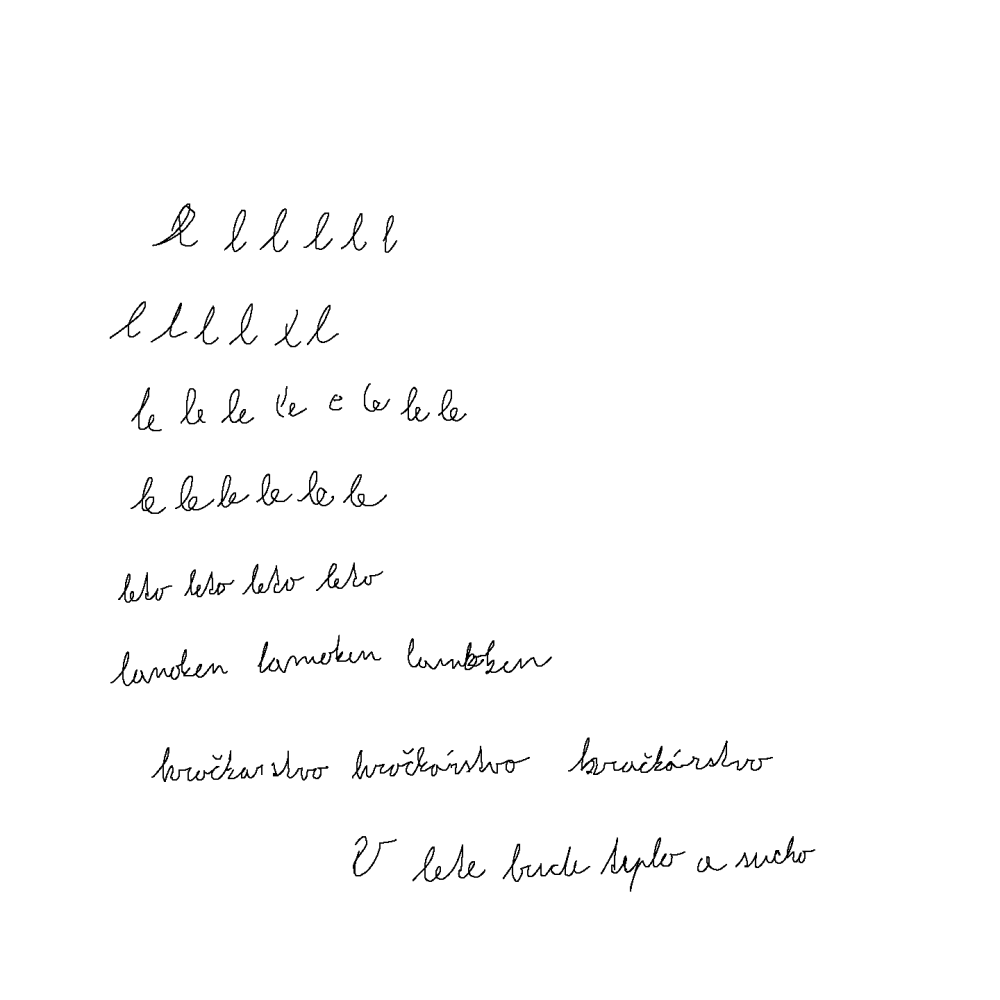 l l l l l l
l l l l l l
le le le le e le le le
le le le le le le
leto leto leto leto
lamoken lamoken lamoken
hračkarstvo hračkárstvo hračkárstvo
V lete bude teplo a sucho